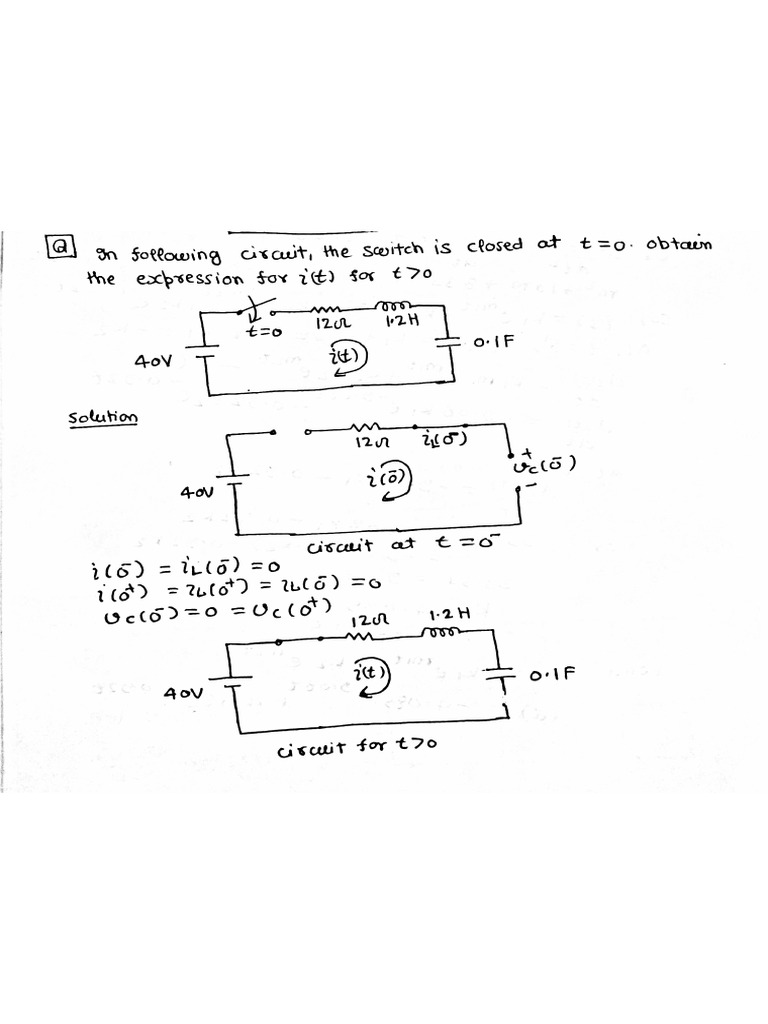 Q In following circuit, the switch is closed at t=0. obtain
the expression for i(t) for t>0
t=0
12Ω
1.2H
40V
i(t)
0.1F
Solution
12Ω
iL(0⁻)
+
vc(0⁻)
-
i(0⁻)
40V
circuit at t=0⁻
i(0⁻) = iL(0⁻) = 0
i(0⁺) = iL(0⁺) = iL(0⁻) = 0
vc(0⁻) = 0 = vc(0⁺)
12Ω
1.2H
i(t)
40V
0.1F
circuit for t>0